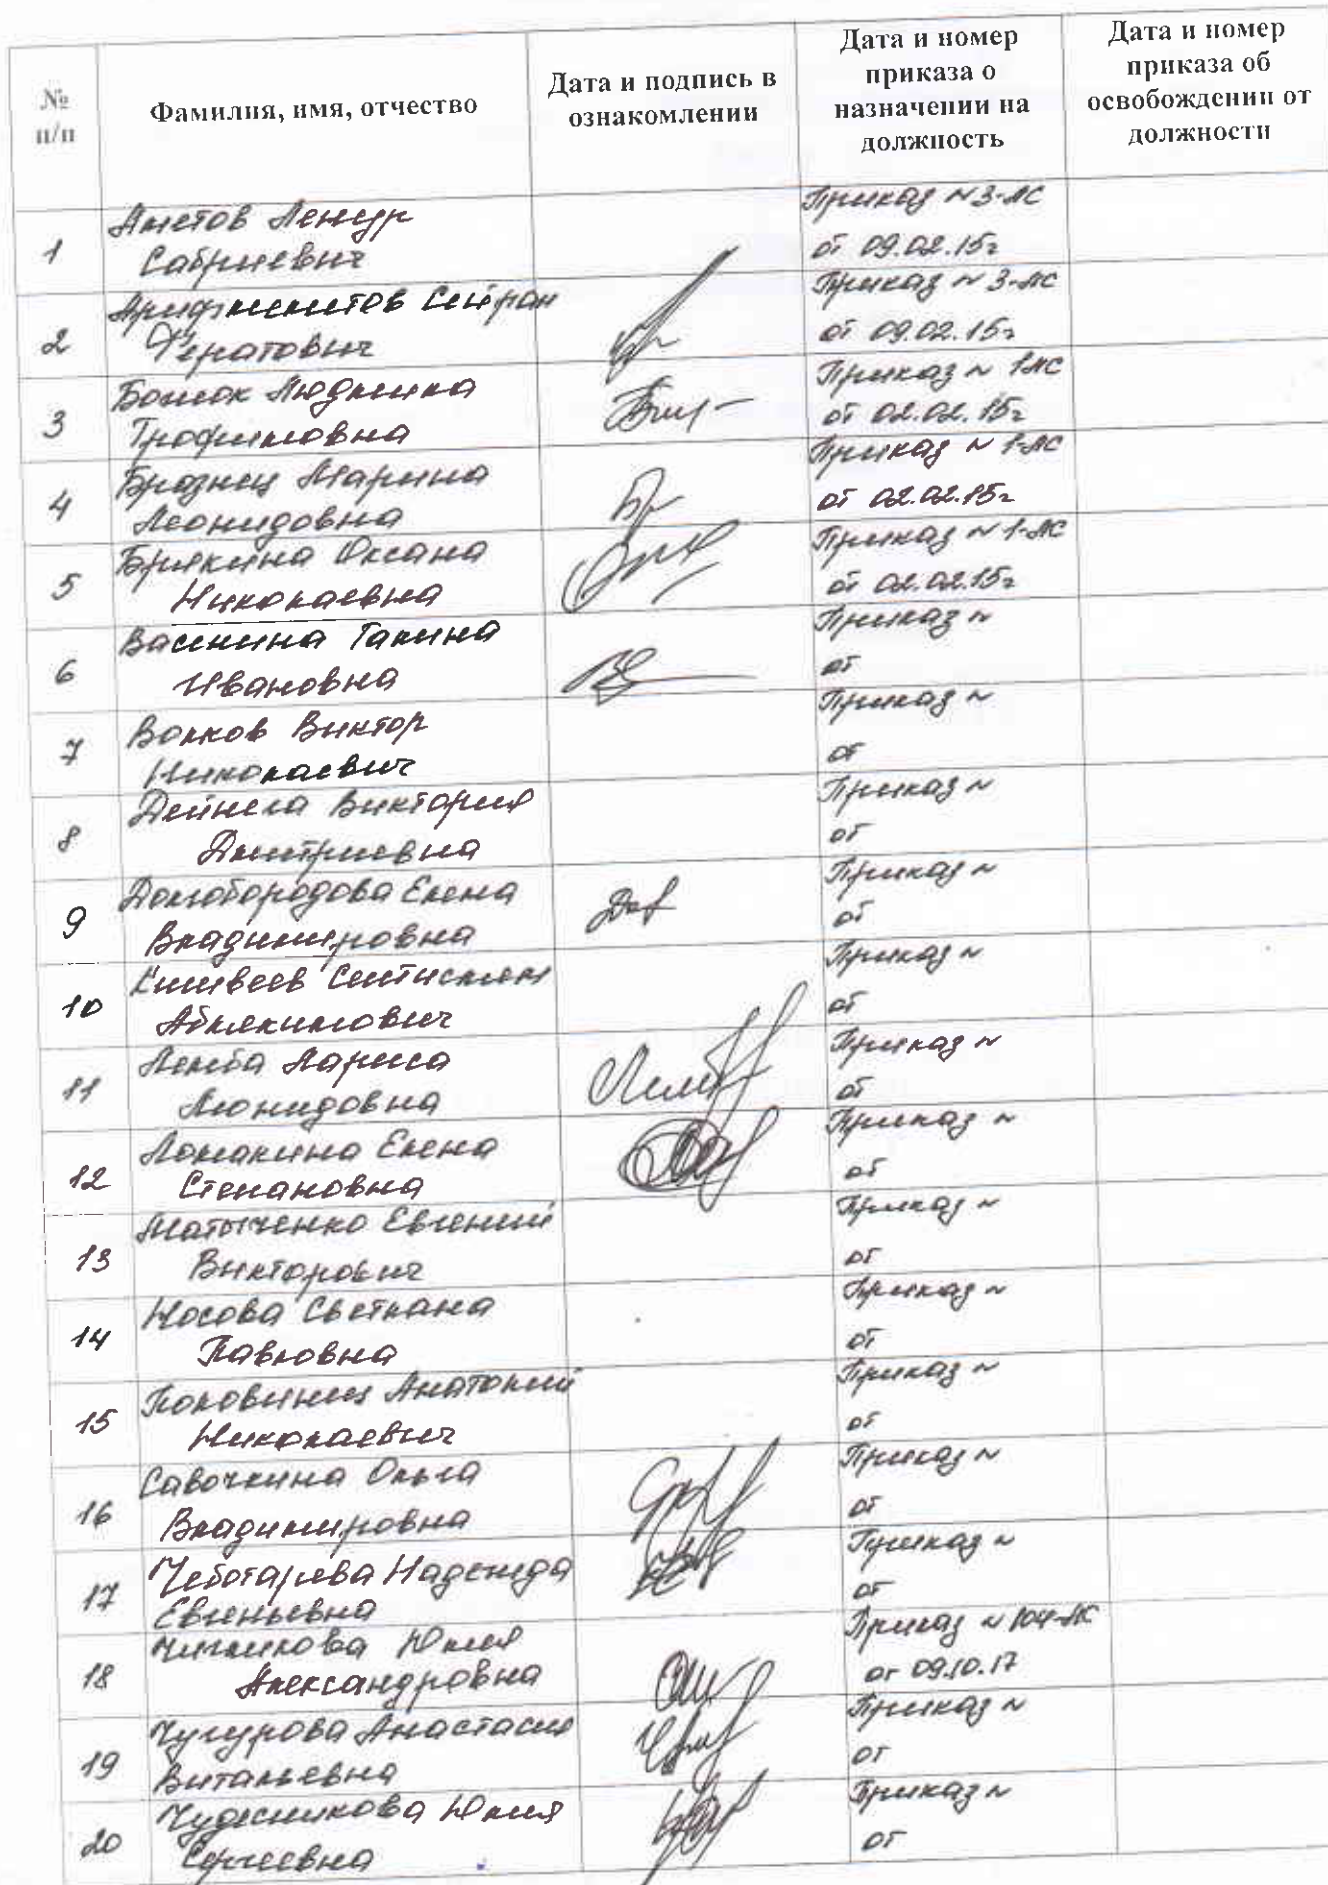 №
п/п
Фамилия, имя, отчество
Дата и подпись в
ознакомлении
Дата и номер
приказа о
назначении на
должность
Дата и номер
приказа об
освобождении от
должности
1
Аметов Ленур
Сабриевич
Приказ № 3-ЛС
от 09.02.15г
2
Арифмеметов Сейран
Фератович
Приказ № 3-ЛС
от 09.02.15г
3
Людмила
Трофимовна
Приказ № 1ЛС
от 02.02.15г
4
Брознец Марина
Леонидовна
Приказ № 1-ЛС
от 02.02.15г
5
Брикина Оксана
Николаевна
Приказ № 1-ЛС
от 02.02.15г
6
Васинина Галина
Ивановна
Приказ №
от
7
Волков Виктор
Николаевич
Приказ №
от
8
Дейнега Виктория
Дмитриевна
Приказ №
от
9
Долгобородова Елена
Владимировна
Приказ №
от
10
Приказ №
от
11
Лемба Лариса
Леонидовна
Приказ №
от
12
Ломакина Елена
Степановна
Приказ №
от
13
Матыченко Евгений
Викторович
Приказ №
от
14
Носова Светлана
Павловна
Приказ №
от
15
Половинец Анатолий
Николаевич
Приказ №
от
16
Савочкина Ольга
Владимировна
Приказ №
от
17
Чеботарева Надежда
Евгеньевна
Приказ №
от
18
Юлия
Александровна
Приказ № 104-ЛС
от 09.10.17
19
Чугурова Анастасия
Витальевна
Приказ №
от
20
Чудесникова Юлия
Сергеевна
Приказ №
от